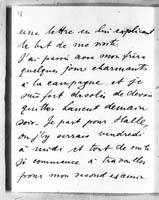 une lettre en lui expliquant
le but de ma visite.
J'ai passé avec mon frère
quelques jours charmants
à la campagne et je
suis fort désolée de devoir
quitter demain
soir. Je part pour Halle,
où j'y serais vendredi
à midi et tout de suite
je commence à travailler
pour mon second examen